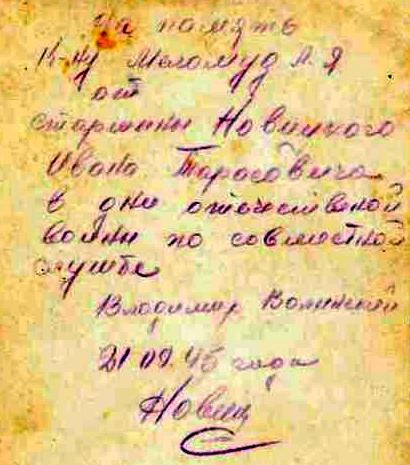 На память
К-ну Меломуд А. Я
от
старшины Новицкого
Ивана Тарасовича
в дни отечественой
войны по совместной
службе
Владимир Волинский
21 09. 45 года
Новиц